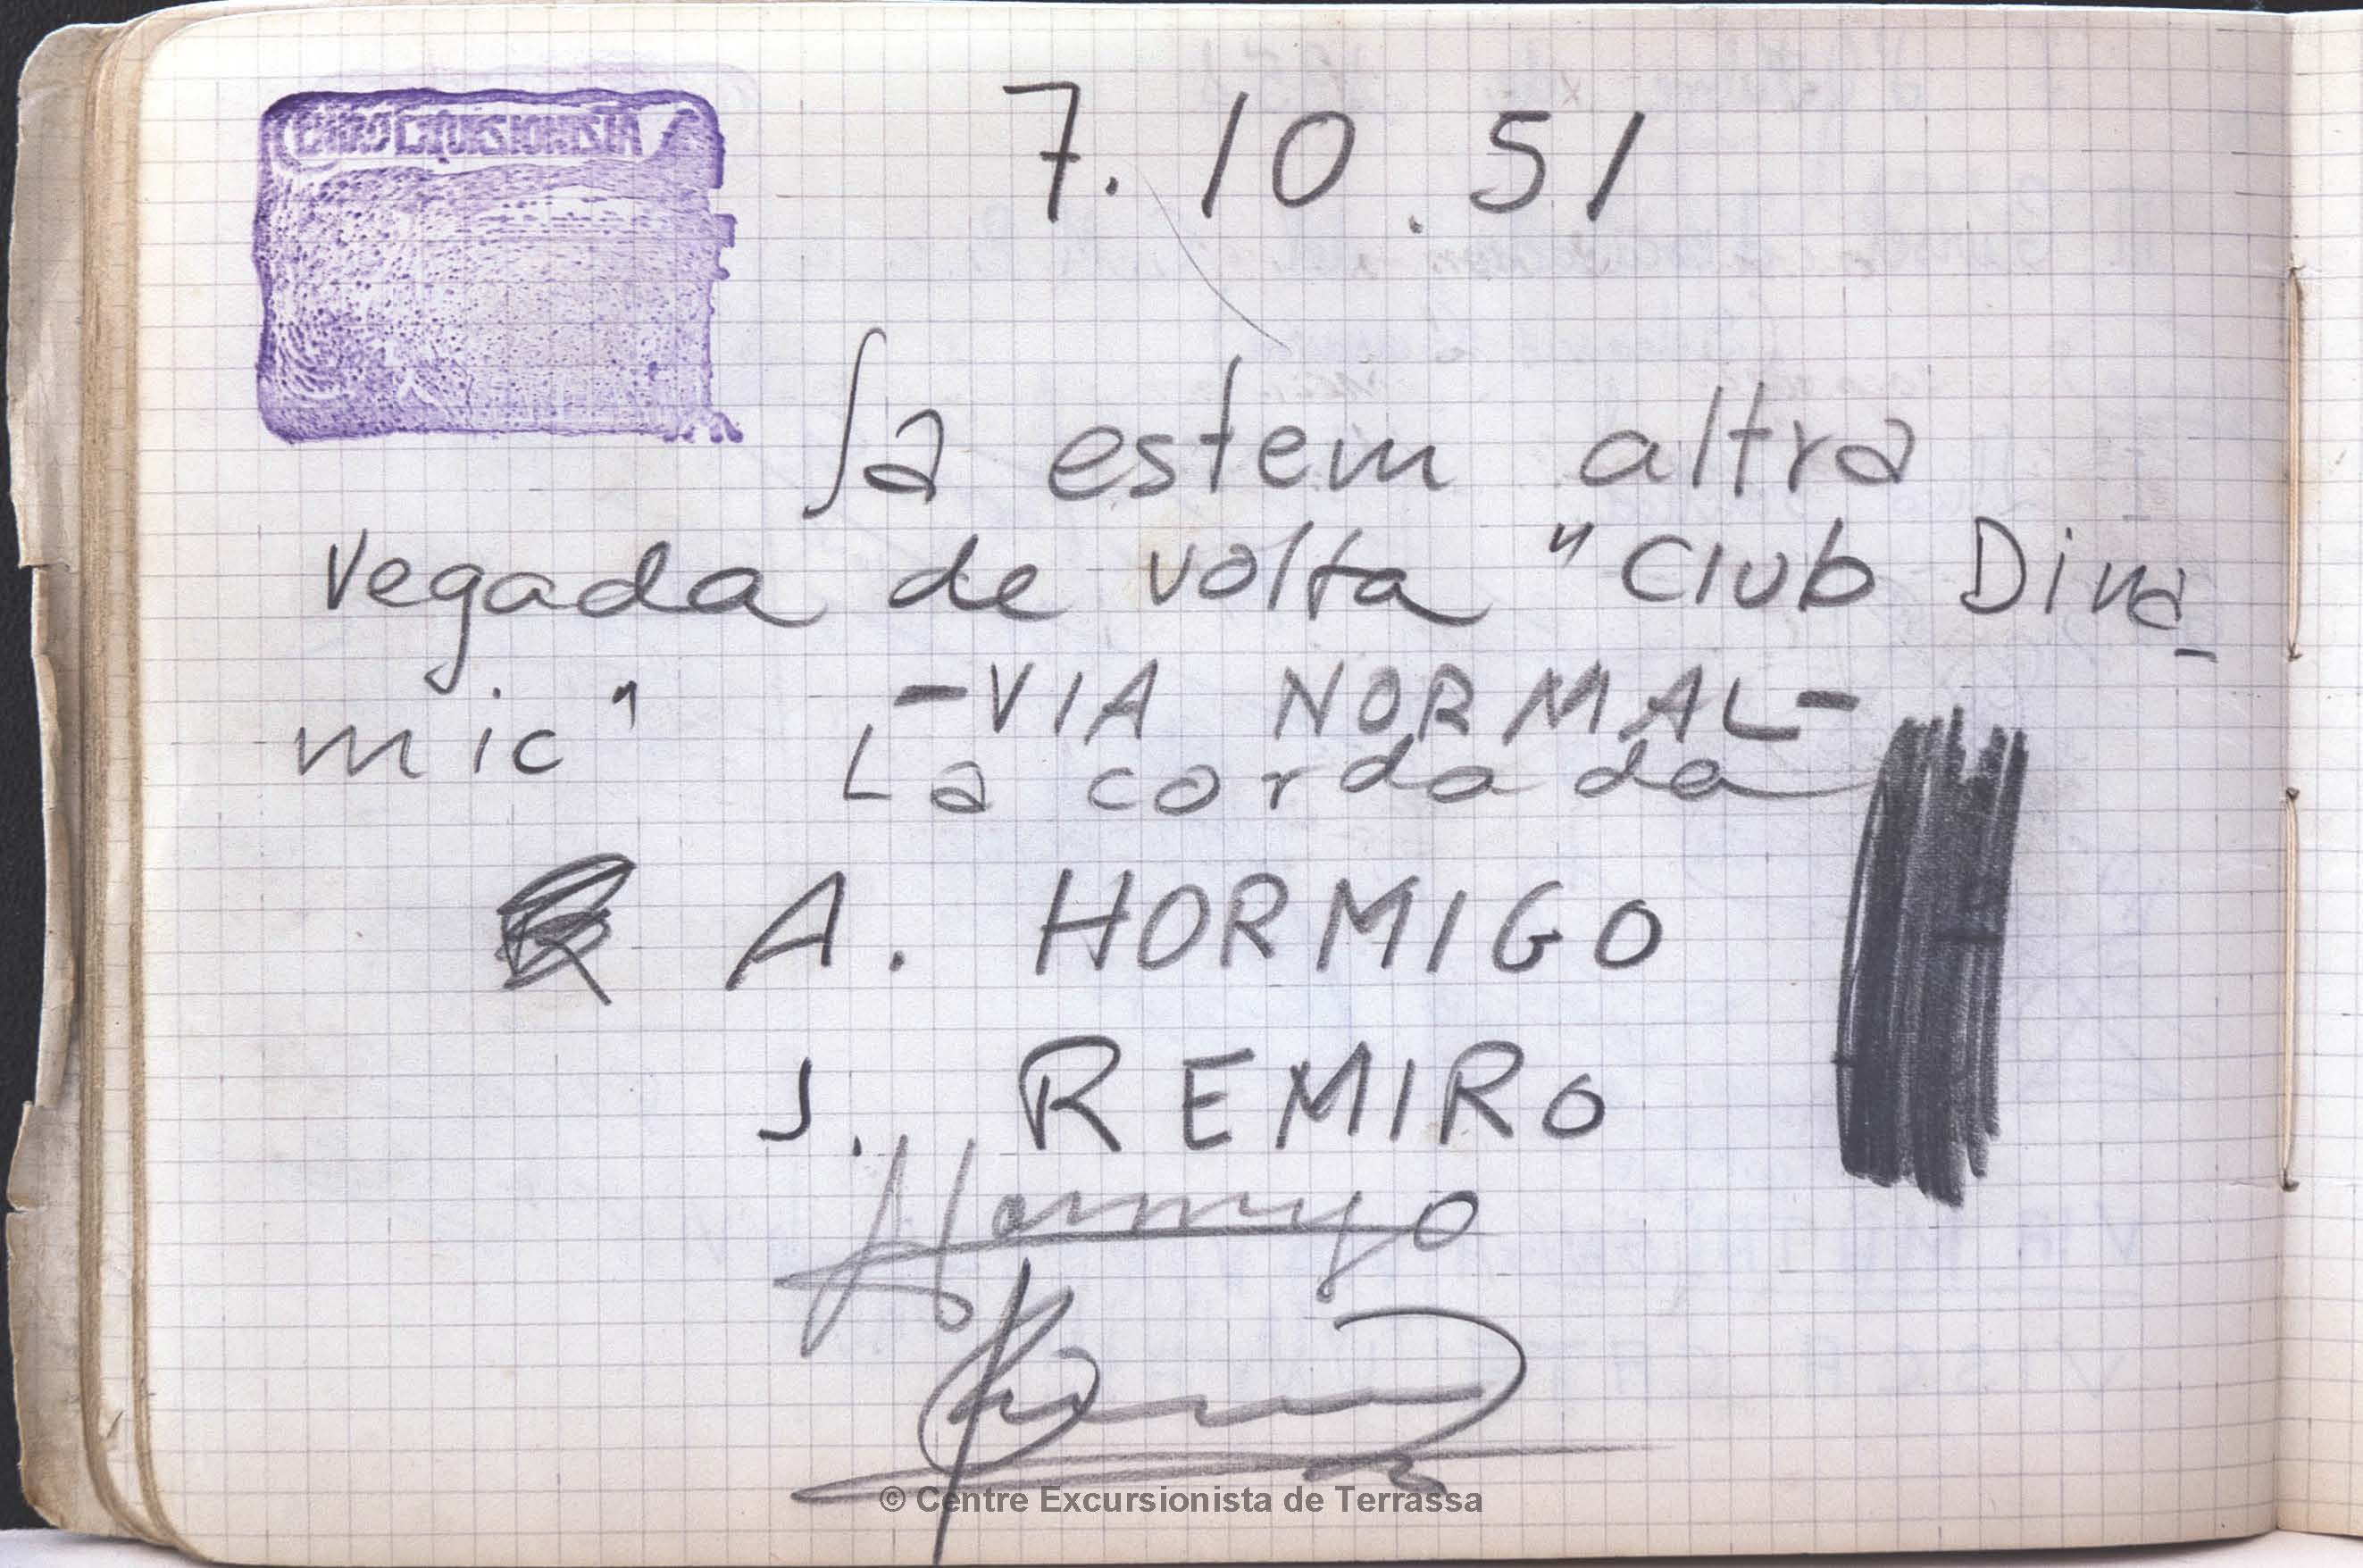 7.10.51
Ja estem altra
vegada de volta "Club Dina-
mic" -VIA NORMAL-
La cordada
A. HORMIGO
J. REMIRO
Hormigo
© Centre Excursionista de Terrassa